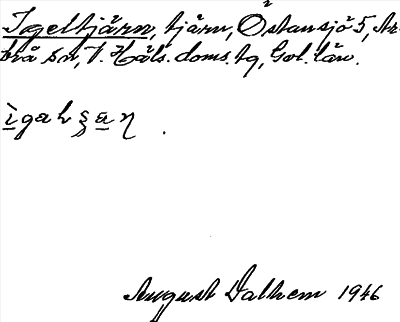 Igeltjärn, tjärn, Östansjö 5, Ar-
brå sn, V. Häls. doms. tg, Gävl. län.
ìgahʂan .
August Dalhem 1946